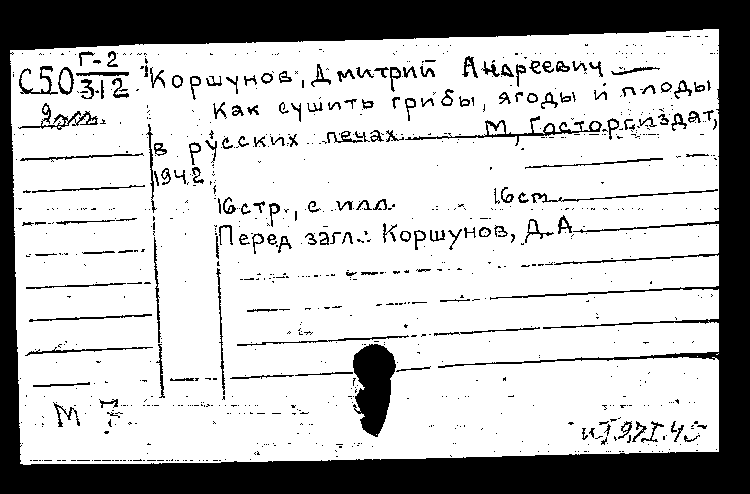 С50 Г-2
312
Коршунов, Дмитрий Андреевич
Как сушить грибы, ягоды и плоды
в русских печах М, Госторгиздат,
1942
16 стр., с илл. 16 см.
Перед загл.: Коршунов, Д.А.
М 7